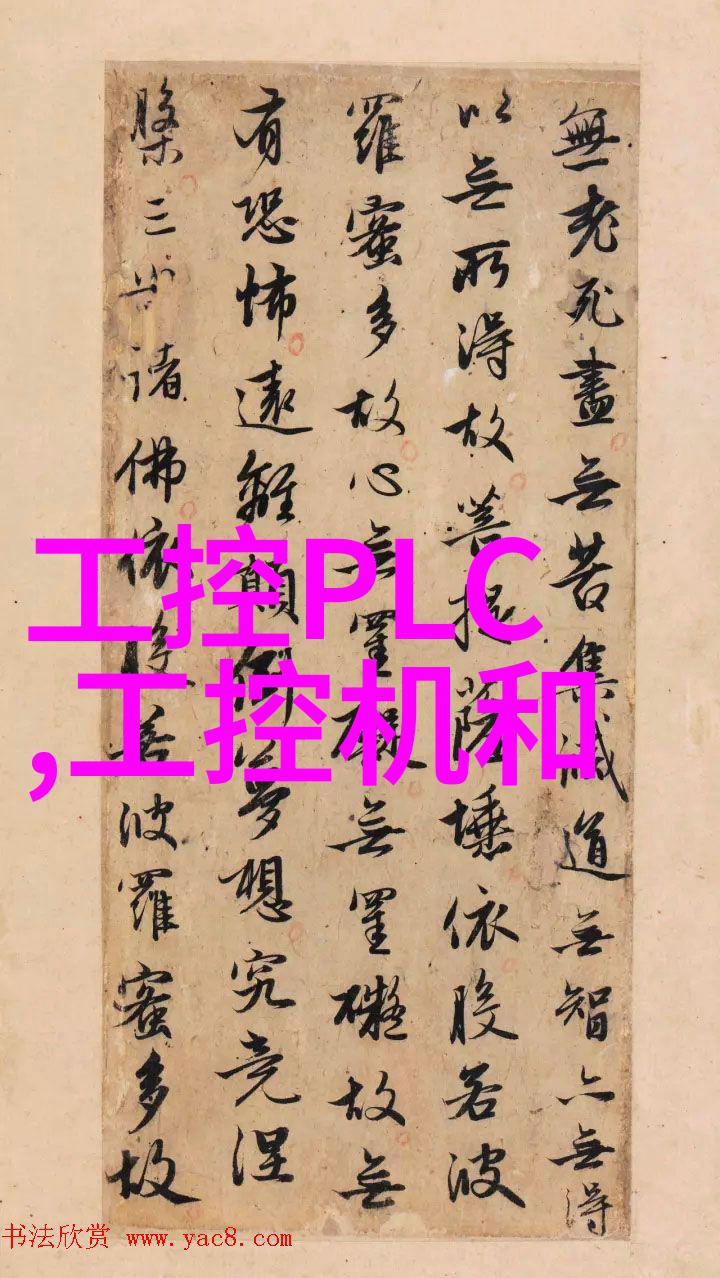 無老死盡無苦集滅道無智亦無得
以無所得故菩提薩埵依般若波
羅蜜多故心無罣礙無罣礙故無
有恐怖遠離顛倒夢想究竟涅
槃三世諸佛依般若波羅蜜多故
工控PLC
,工控机和
书法欣赏 www.yac8.com